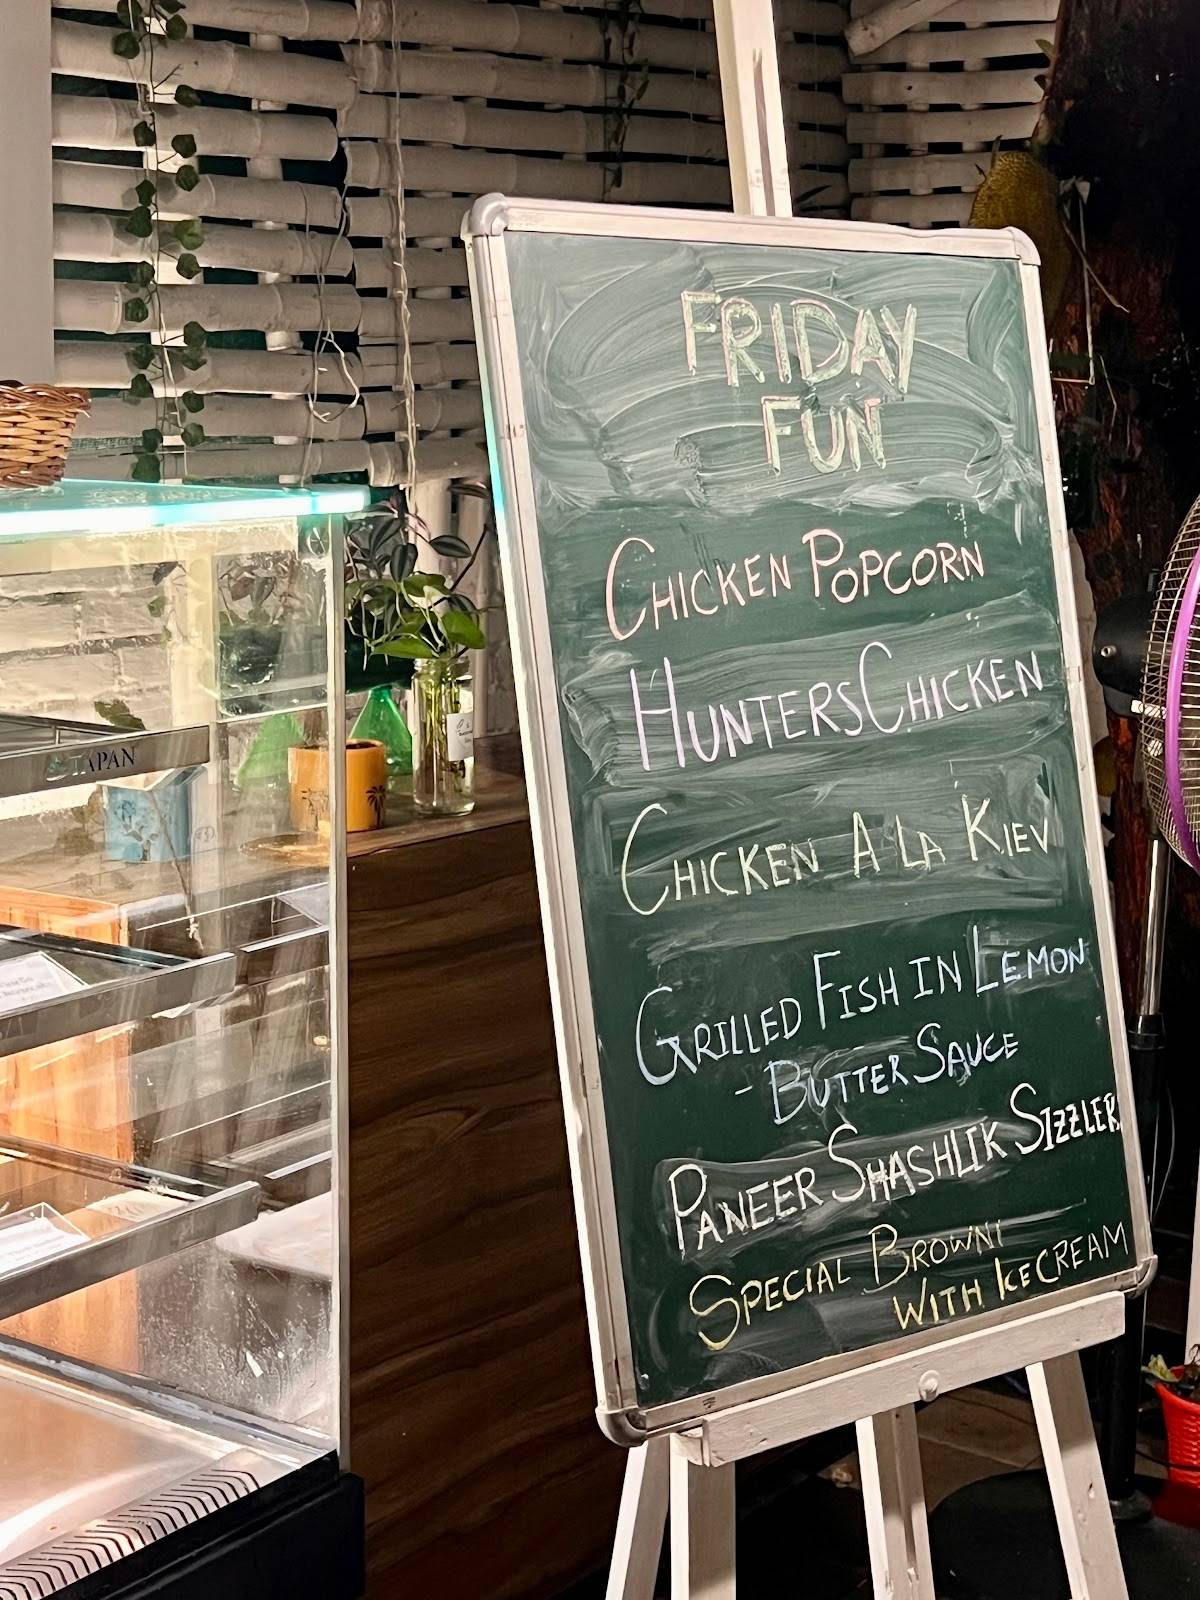 FRIDAY
FUN
CHICKEN POPCORN
HUNTERS CHICKEN
CHICKEN A LA KIEV
GRILLED FISH IN LEMON
- BUTTER SAUCE
PANEER SHASHLIK SIZZLER
SPECIAL BROWNI
WITH ICECREAM
TAPAN